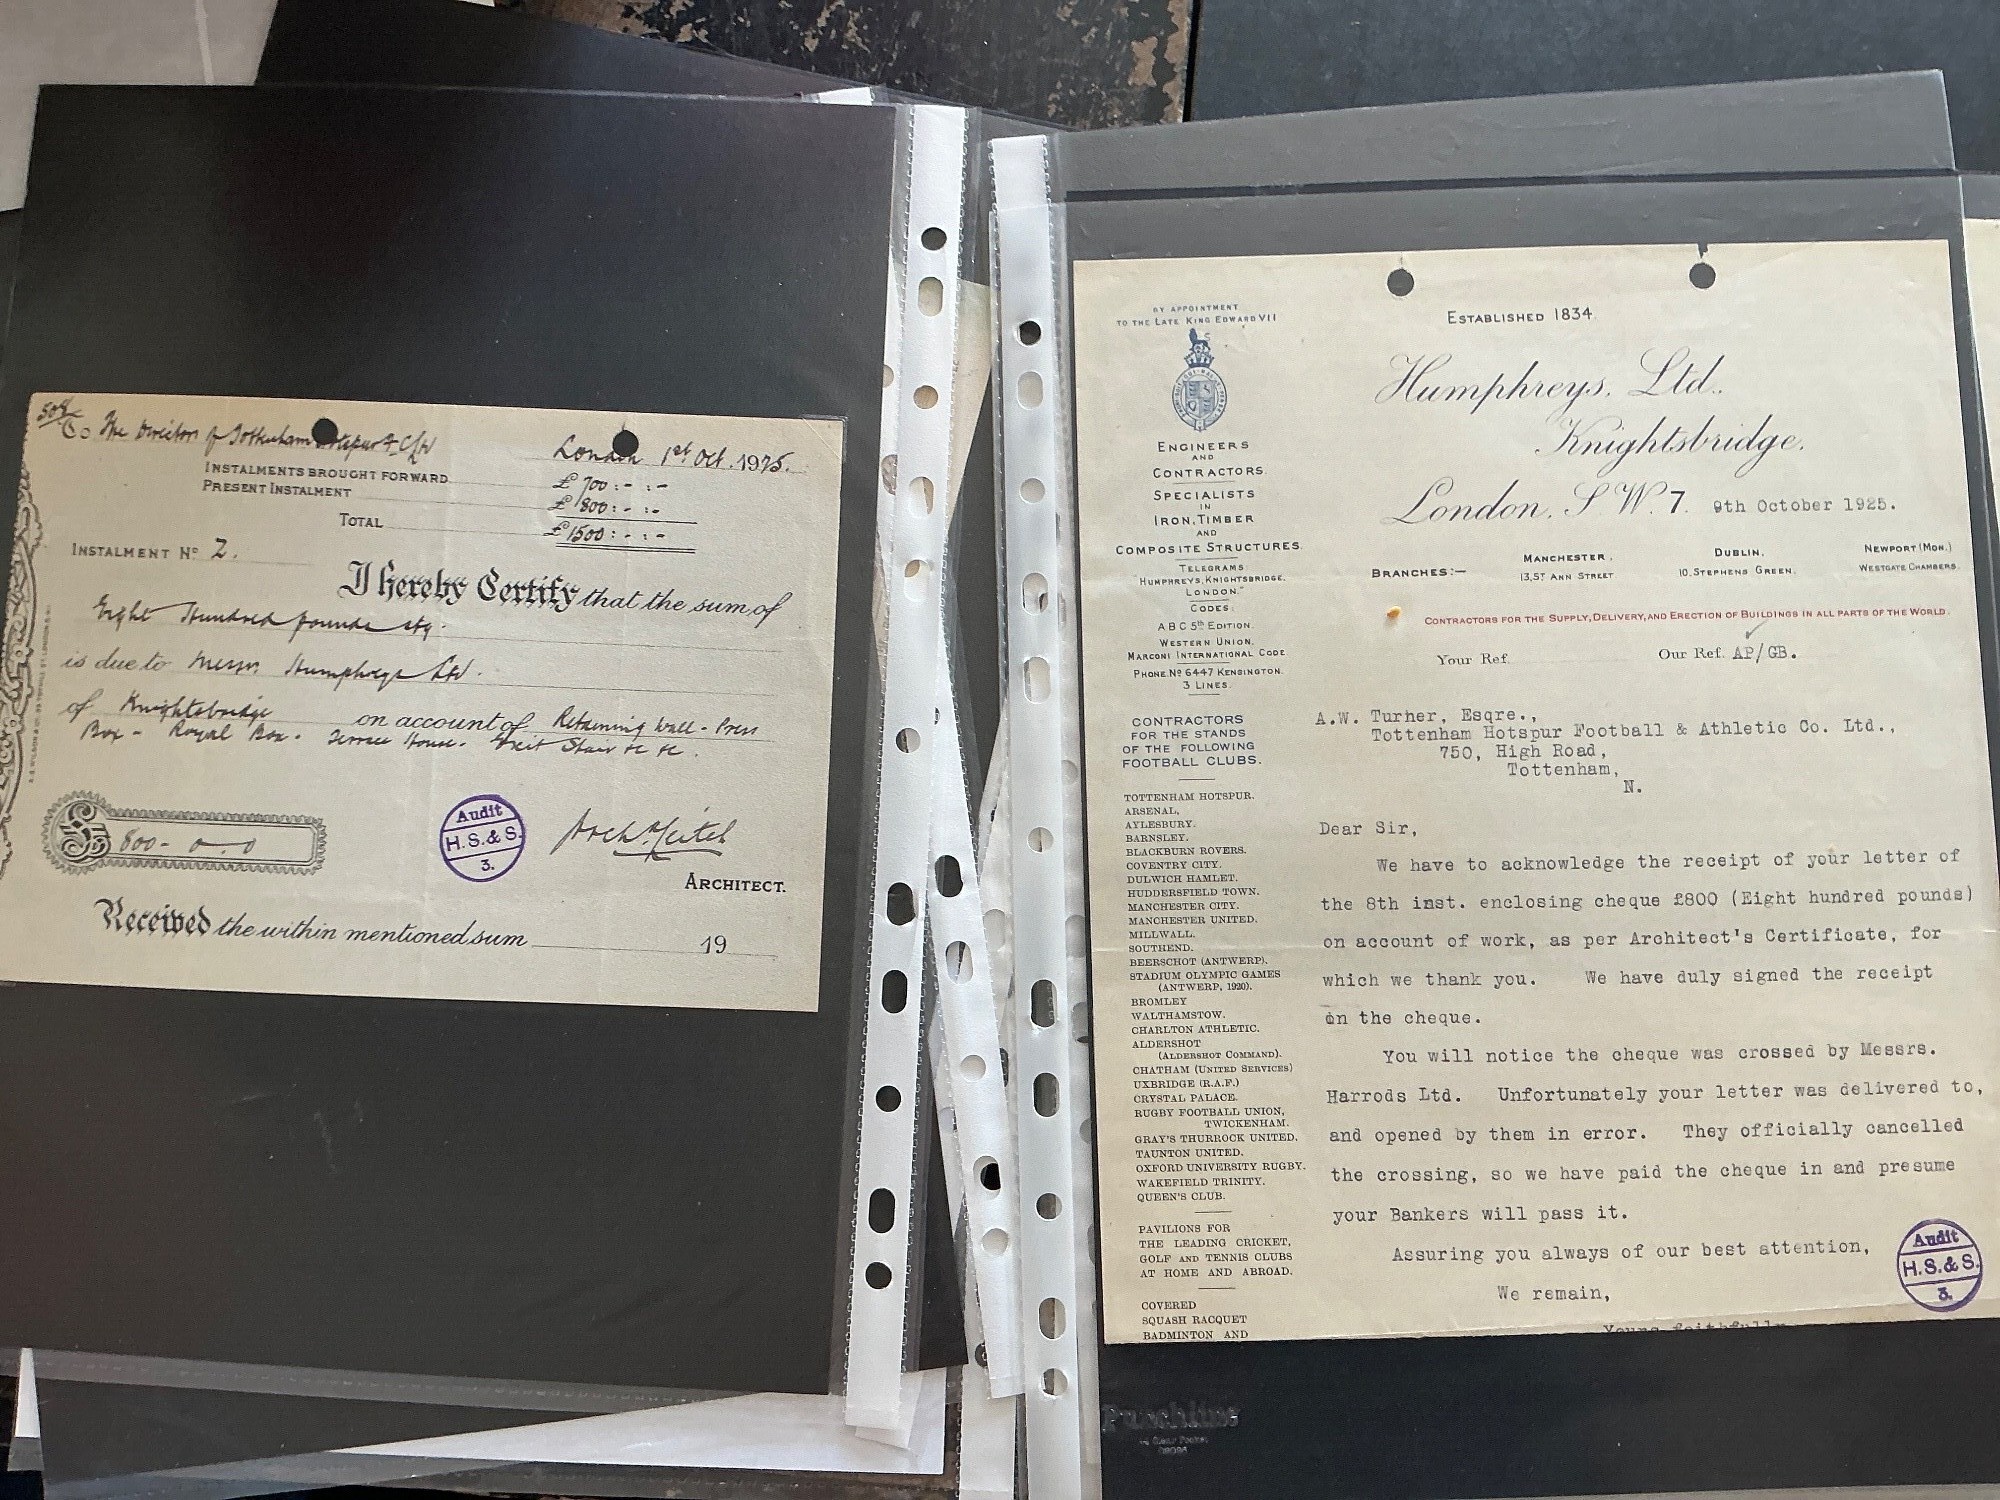 50
To The Directors of Tottenham Hotspur F. C/
London 1st Oct. 1925.
INSTALMENTS BROUGHT FORWARD £ 700 : - : -
PRESENT INSTALMENT £ 800 : - : -
TOTAL £ 1500 : - : -
INSTALMENT No 2.
I hereby Certify that the sum of
Eight Hundred pounds stg.
is due to Messrs. Humphreys Ltd.
of Knightsbridge on account of Retaining Wall - Press
Box - Royal Box - Terrace House - Exit Stair &c &c.
£ 800 - 0 - 0
Audit
H.S.& S.
3.
Arch. Leitch
ARCHITECT.
Received the within mentioned sum 19
BY APPOINTMENT
TO THE LATE KING EDWARD VII
ENGINEERS
AND
CONTRACTORS.
SPECIALISTS
IN
IRON, TIMBER
AND
COMPOSITE STRUCTURES.
TELEGRAMS
"HUMPHREYS, KNIGHTSBRIDGE,
LONDON."
CODES:
A B C 5th EDITION.
WESTERN UNION.
MARCONI INTERNATIONAL CODE
PHONE No 6447 KENSINGTON.
3 LINES.
CONTRACTORS
FOR THE STANDS
OF THE FOLLOWING
FOOTBALL CLUBS.
TOTTENHAM HOTSPUR.
ARSENAL,
AYLESBURY.
BARNSLEY.
BLACKBURN ROVERS.
COVENTRY CITY.
DULWICH HAMLET.
HUDDERSFIELD TOWN.
MANCHESTER CITY.
MANCHESTER UNITED.
MILLWALL.
SOUTHEND.
BEERSCHOT (ANTWERP).
STADIUM OLYMPIC GAMES
(ANTWERP, 1920).
BROMLEY
WALTHAMSTOW.
CHARLTON ATHLETIC.
ALDERSHOT
(ALDERSHOT COMMAND).
CHATHAM (UNITED SERVICES)
UXBRIDGE (R.A.F.)
CRYSTAL PALACE.
RUGBY FOOTBALL UNION,
TWICKENHAM.
GRAY'S THURROCK UNITED.
TAUNTON UNITED.
OXFORD UNIVERSITY RUGBY.
WAKEFIELD TRINITY.
QUEEN'S CLUB.
PAVILIONS FOR
THE LEADING CRICKET,
GOLF AND TENNIS CLUBS
AT HOME AND ABROAD.
COVERED
SQUASH RACQUET
BADMINTON AND
ESTABLISHED 1834
Humphreys, Ltd.,
Knightsbridge,
London, S.W.7. 9th October 1925.
BRANCHES:— MANCHESTER, DUBLIN, NEWPORT (MON.)
13, ST ANN STREET 10, STEPHENS GREEN. WESTGATE CHAMBERS.
CONTRACTORS FOR THE SUPPLY, DELIVERY, AND ERECTION OF BUILDINGS IN ALL PARTS OF THE WORLD.
Your Ref. Our Ref. AP/GB.
A.W. Turner, Esqre.,
Tottenham Hotspur Football & Athletic Co. Ltd.,
750, High Road,
Tottenham,
N.
Dear Sir,
We have to acknowledge the receipt of your letter of
the 8th inst. enclosing cheque £800 (Eight hundred pounds)
on account of work, as per Architect's Certificate, for
which we thank you. We have duly signed the receipt
on the cheque.
You will notice the cheque was crossed by Messrs.
Harrods Ltd. Unfortunately your letter was delivered to,
and opened by them in error. They officially cancelled
the crossing, so we have paid the cheque in and presume
your Bankers will pass it.
Assuring you always of our best attention,
We remain,
Yours faithfully
Audit
H.S.& S.
3.
Punchline